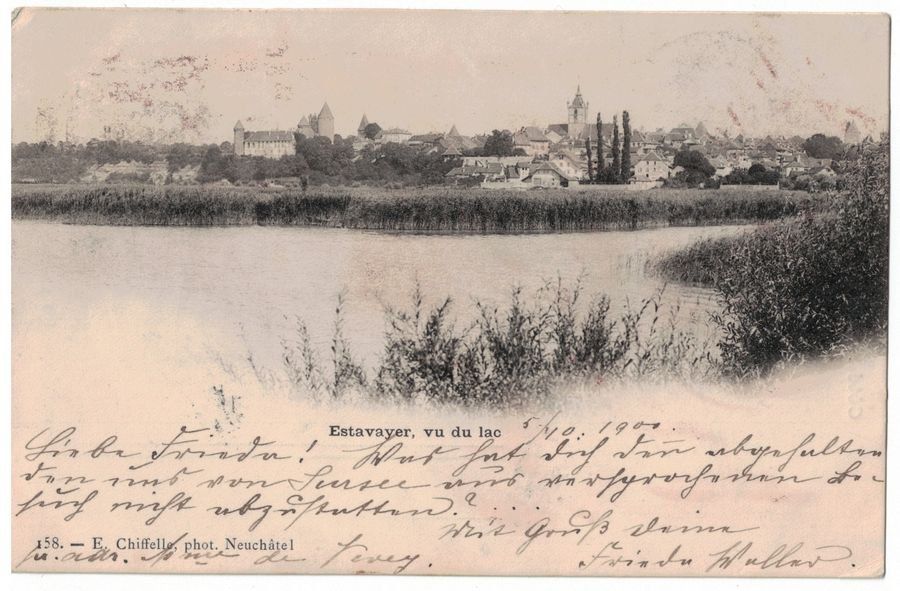 Estavayer, vu du lac
5/10. 1900.
Liebe Frieda! Was hat dich den abgehalten
den uns von Sursee aus versprochenen Be-
such nicht abzustatten?...
Mit Gruß deine
Frieda Waller.
158. — E. Chiffelle, phot. Neuchâtel
p. adr. Mme de